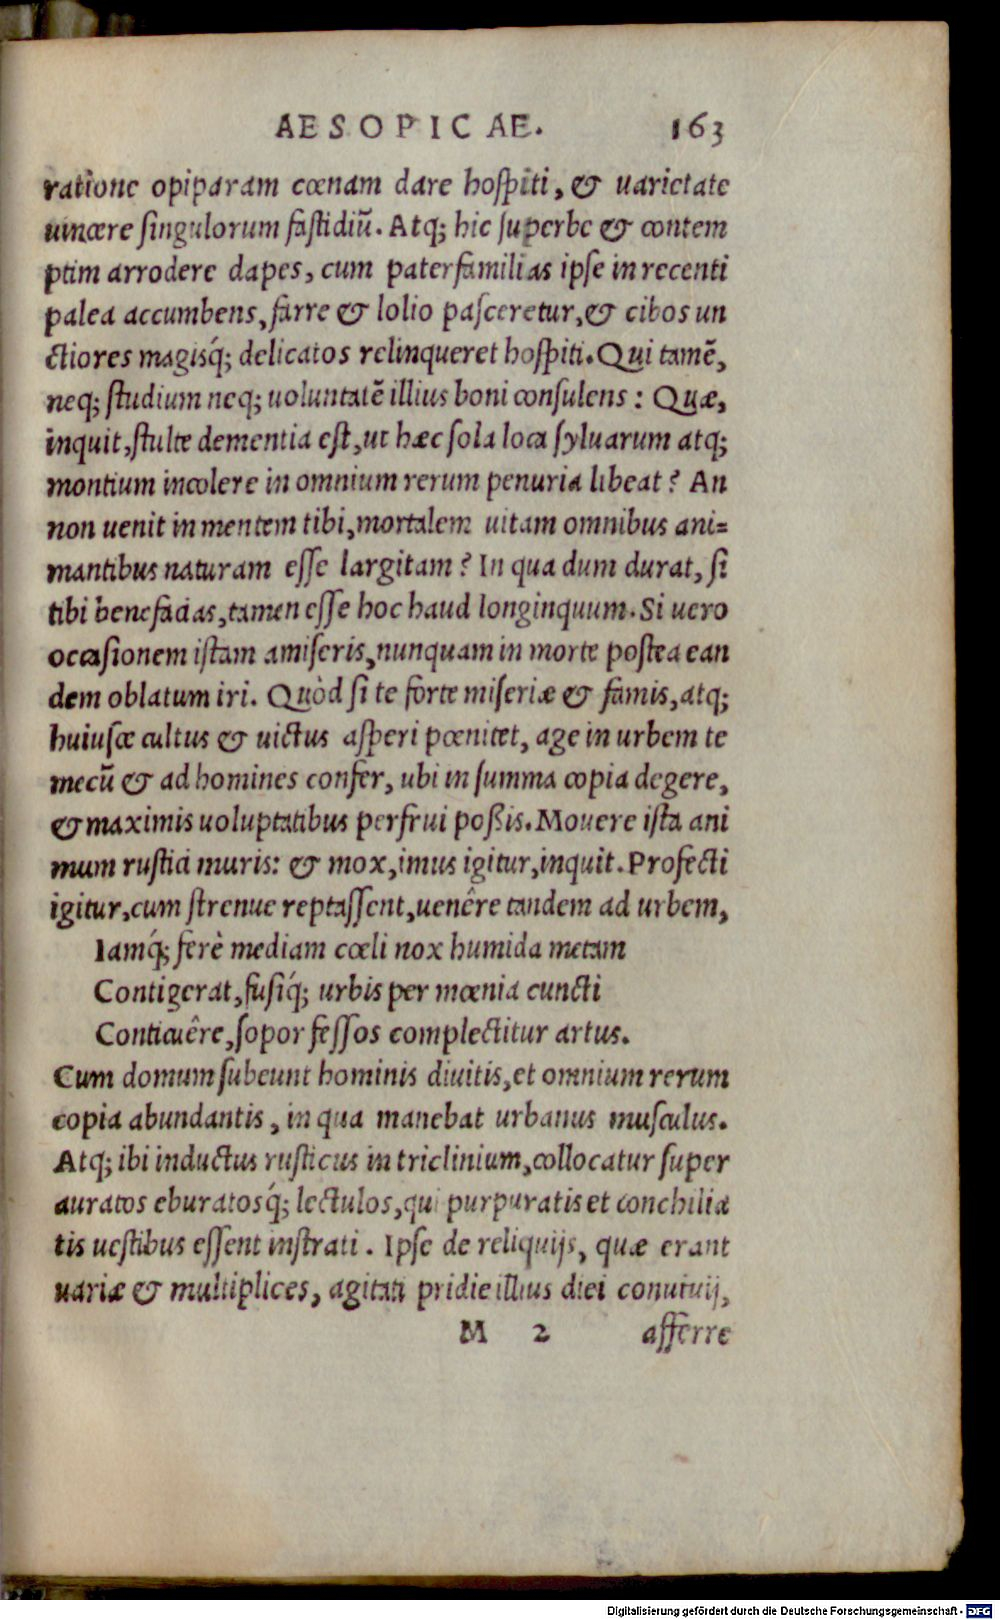 AESOPICAE. 163
ratione opiparam cœnam dare hospiti, & uarietate
uincere singulorum fastidiū. Atq; hic superbe & contem
ptim arrodere dapes, cum paterfamilias ipse in recenti
palea accumbens, farre & lolio pasceretur, & cibos un
ctiores magisq́; delicatos relinqueret hospiti. Qui tamē,
neq; studium neq; uoluntatē illius boni consulens : Quæ,
inquit, stulte dementia est, ut hæc sola loca syluarum atq;
montium incolere in omnium rerum penuria libeat? An
non uenit in mentem tibi, mortalem uitam omnibus ani=
mantibus naturam esse largitam? In qua dum durat, si
tibi benefacias, tamen esse hoc haud longinquum. Si uero
occasionem istam amiseris, nunquam in morte postea ean
dem oblatum iri. Quòd si te forte miseriæ & famis, atq;
huiusce cultus & uictus asperi pœnitet, age in urbem te
mecū & ad homines confer, ubi in summa copia degere,
& maximis uoluptatibus perfrui poßis. Mouere ista ani
mum rustici muris: & mox, imus igitur, inquit. Profecti
igitur, cum strenue reptassent, uenêre tandem ad urbem,
Iamq́; ferè mediam cœli nox humida metam
Contigerat, fusiq́; urbis per mœnia cuncti
Conticuêre, sopor fessos complectitur artus.
Cum domum subeunt hominis diuitis, et omnium rerum
copia abundantis, in qua manebat urbanus musculus.
Atq; ibi inductus rusticus in triclinium, collocatur super
auratos eburatosq́; lectulos, qui purpuratis et conchilia
tis uestibus essent instrati. Ipse de reliquijs, quæ erant
uariæ & multiplices, agitati pridie illius diei conuiuij,
M 2 afferre
Digitalisierung gefördert durch die Deutsche Forschungsgemeinschaft - DFG